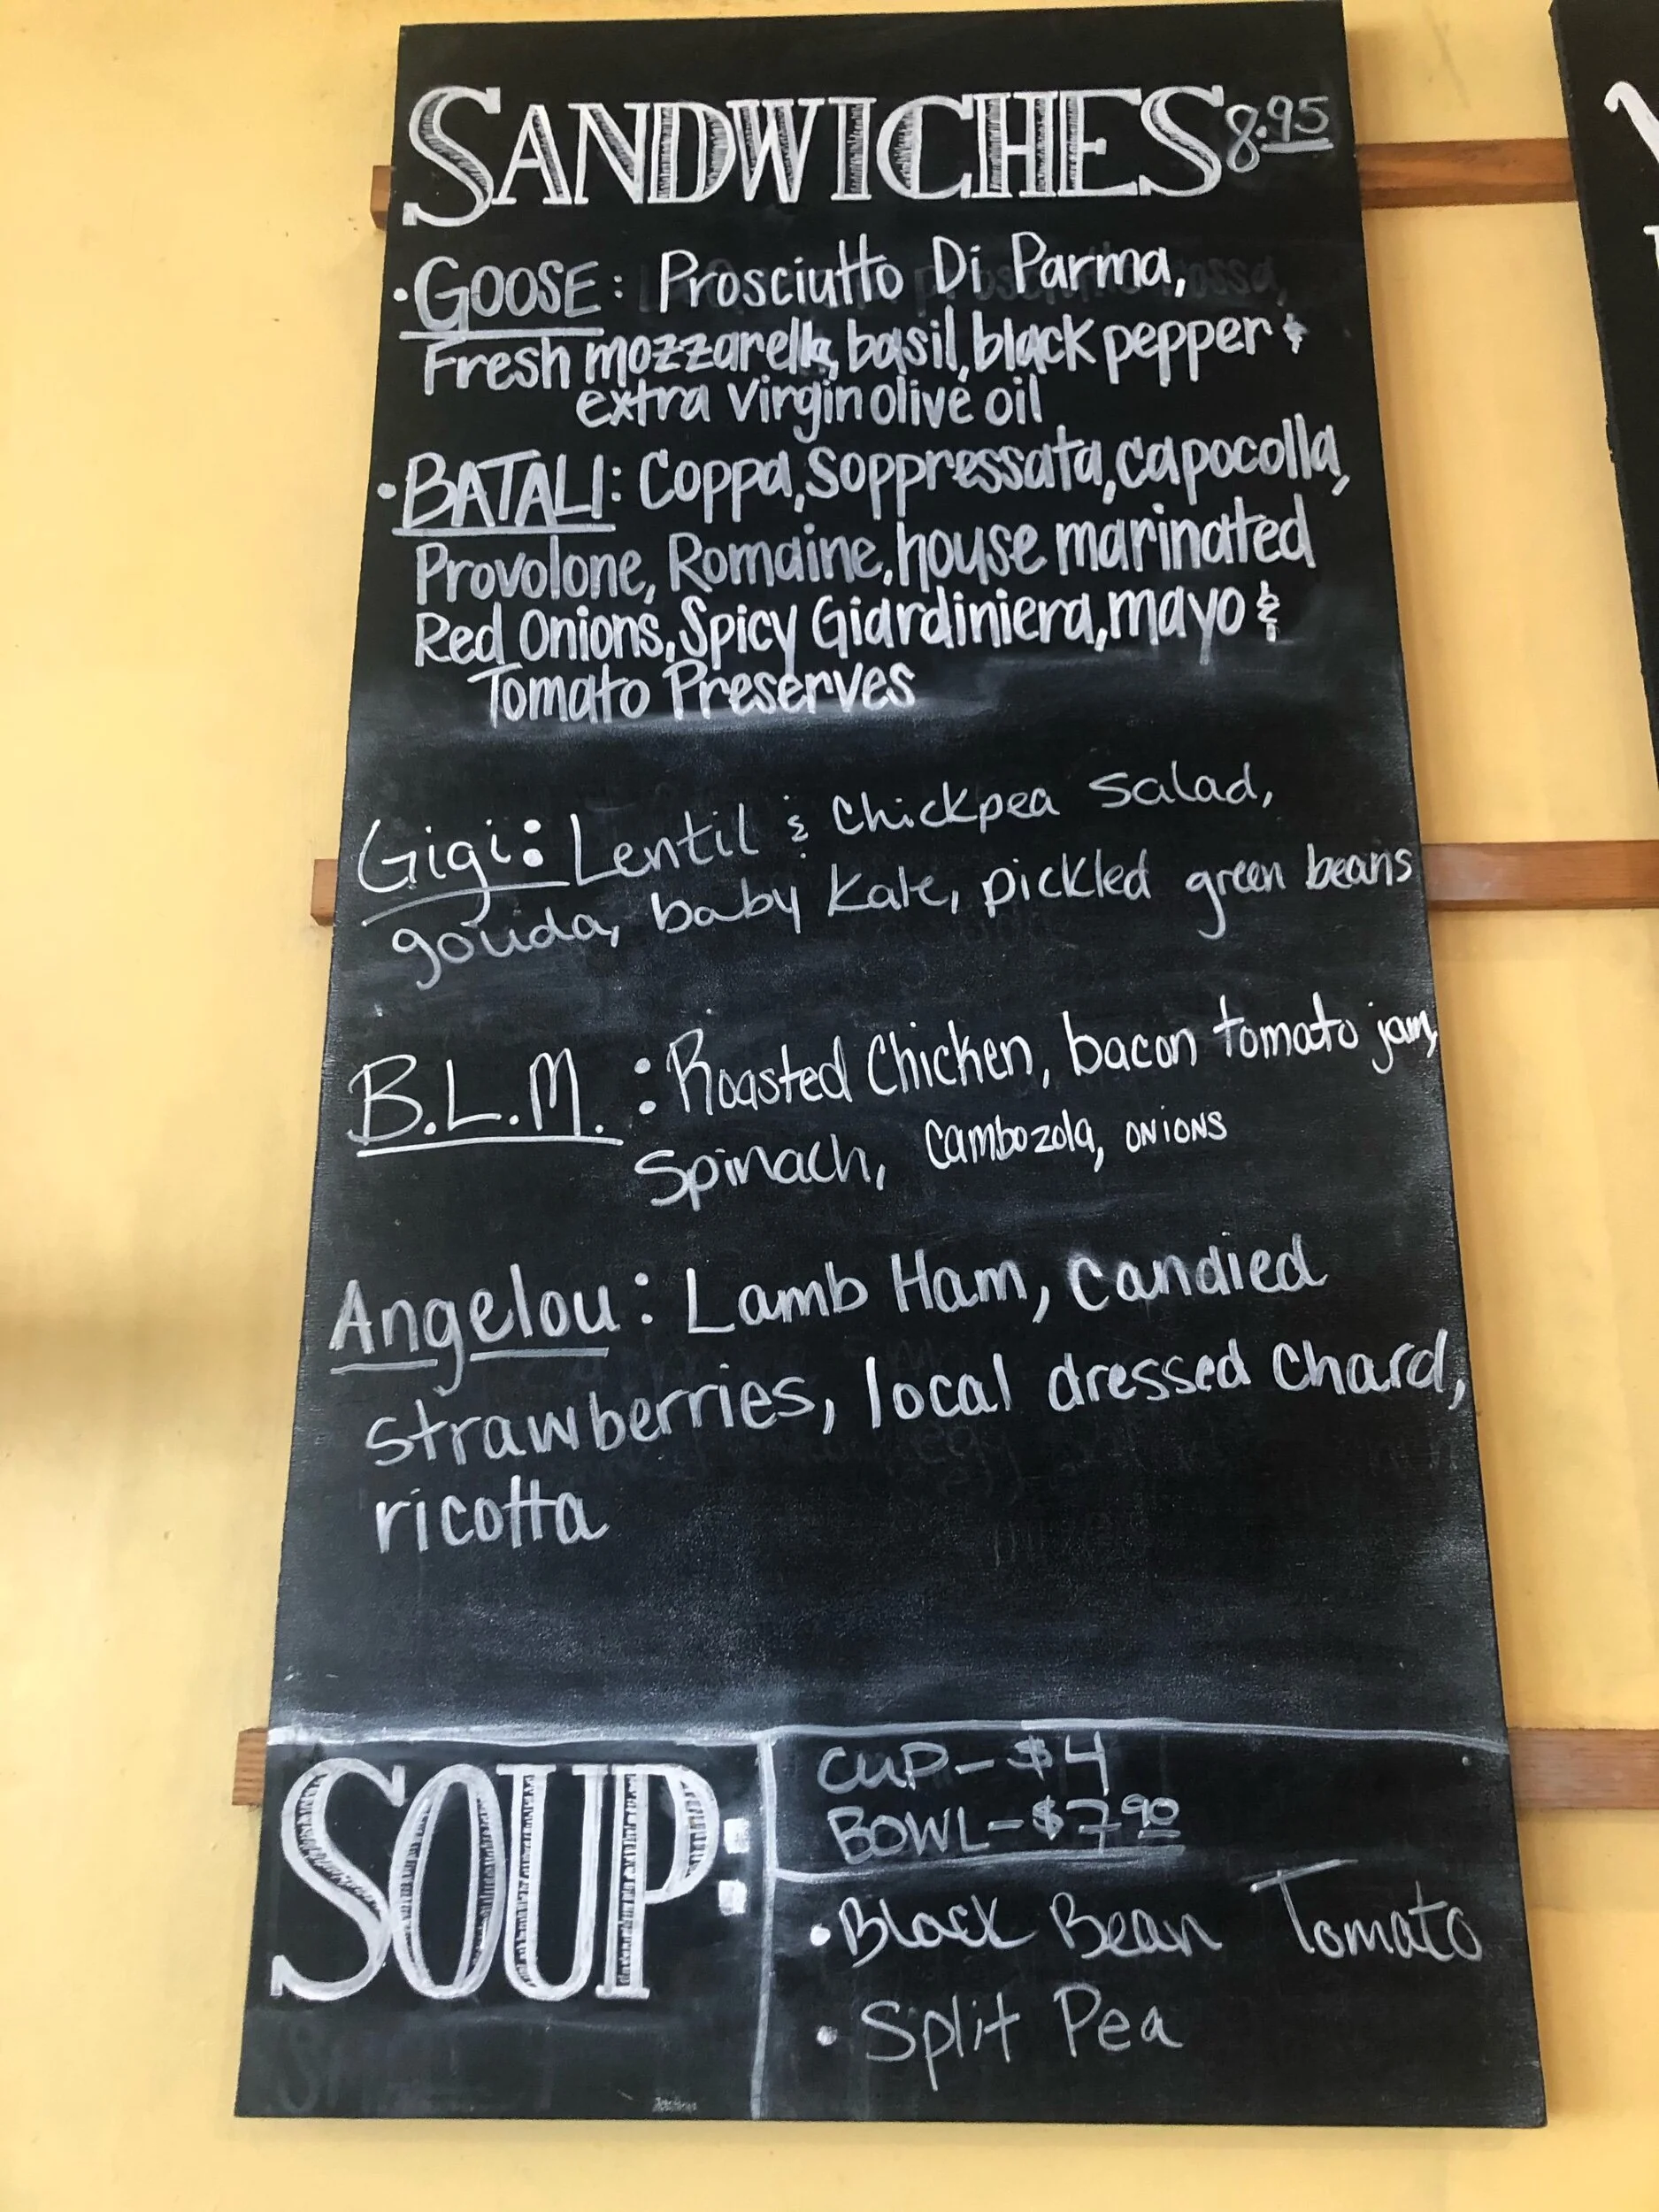 SANDWICHES 8.95
· GOOSE: Prosciutto Di Parma,
Fresh mozzarella, basil, black pepper &
extra virgin olive oil
· BATALI: Coppa, Soppressata, capocolla,
Provolone, Romaine, house marinated
Red Onions, Spicy Giardiniera, mayo &
Tomato Preserves
Gigi: Lentil & Chickpea Salad,
gouda, baby Kale, pickled green beans
B.L.M. : Roasted Chicken, bacon tomato jam,
Spinach, Cambozola, ONIONS
Angelou: Lamb Ham, candied
strawberries, local dressed chard,
ricotta
SOUP:
CUP - $4
BOWL - $7.90
· Black Bean Tomato
· Split Pea